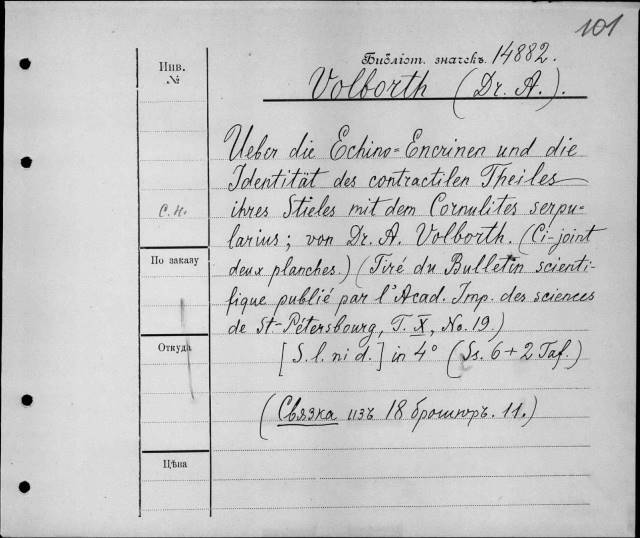 101
Библіот. значекъ. 14882.
Инв.
№
Volborth (Dr. A.).
Ueber die Echino=Encrinen und die
Identität des contractilen Theiles
ihres Stieles mit dem Cornulites serpu=
larius; von Dr. A. Volborth. (Ci-joint
deux planches.) (Tiré du Bulletin scienti-
fique publié par l'Acad. Imp. des sciences
de St-Pétersbourg, T. X, No. 19.)
[S. l. ni d.] in 4° (Ss. 6+2 Taf.)
(Связка изъ 18 брошюръ. 11.)
с. н.
По заказу
Откуда
Цѣна